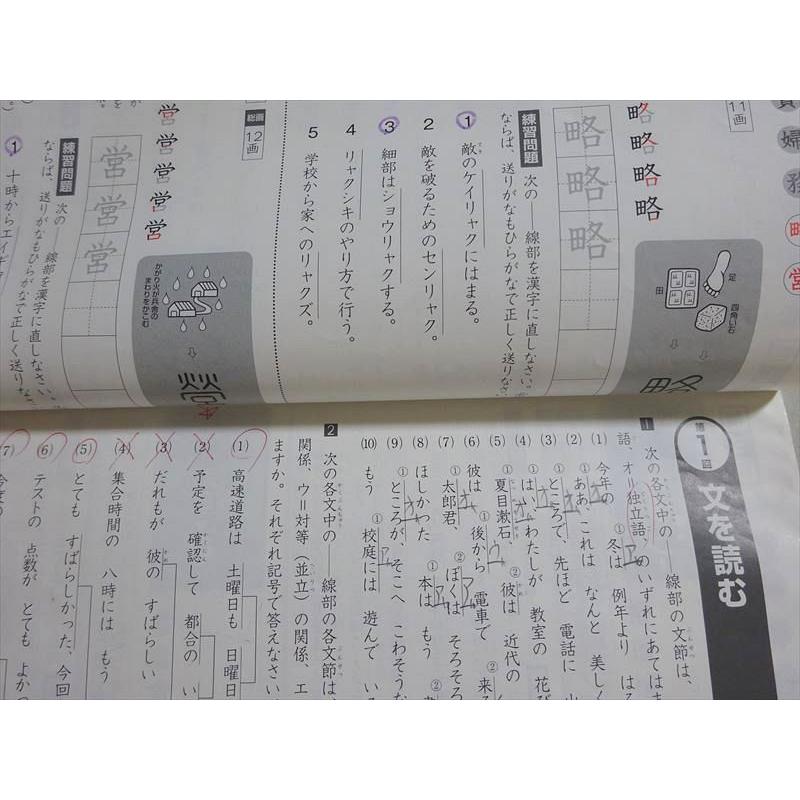 11画
略
略
略
略
略
略
略
足
四角い石
田
略
練習問題
次の――線部を漢字に直しなさい。
ならば、送りがなもひらがなで正しく送りなさい
1 敵のケイリャクにはまる。
2 敵を破るためのセンリャク。
3 細部はショウリャクする。
4 リャクシキのやり方で行う。
5 学校から家へのリャクズ。
婦
務
略
営
総画
12画
営
営
営
営
営
営
営
営
かがり火が兵舎の
まわりをかこむ
練習問題
次の――線部を漢字に直しなさい。
ならば、送りがなもひらがなで正しく送りな
1 十時からエイギ
第1回
文を読む
1 次の各文中の――線部の文節は、
語、オ=独立語、のいずれにあてはま
(1) 今年の ①冬は 例年より
(2) ①ああ、これは なんと 美しく
(3) ①ところで、先ほど 電話に
(4) ①はい、わたしが 教室の 花び
(5) ①夏目漱石、②彼は 近代の
(6) 彼は ①後から 電車で
(7) ①太郎君、②ぼくは そろそろ
(8) ほしかった ①本は もう
(9) ①ところが、そこへ こわそうな
(10) もう ①校庭には 遊んで い
2 次の各文中の――線部の各文節は、
関係、ウ=対等(並立)の関係、エ
ますか。それぞれ記号で答えなさい
(1) 高速道路は 土曜日も 日曜日
(2) 予定を 確認して 都合の い
(3) だれもが 彼の すばらしい
(4) 集合時間の 八時には もう
(5) とても すばらしかった、今回
(6) テストの 点数が とても よかっ
(7)